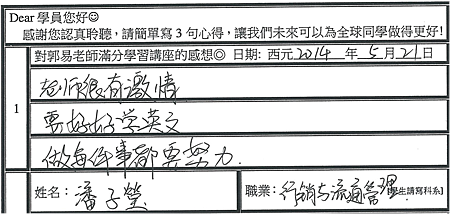 Dear 學員您好☺
感謝您認真聆聽,請簡單寫3句心得,讓我們未來可以為全球同學做得更好!
對郭易老師滿分學習講座的感想◎ 日期: 西元2014年5月21日
1
老师很有激情
要好好学英文
做每件事都要努力.
姓名: 潘子瑩
職業: 行銷与流通管理 學生請寫科系